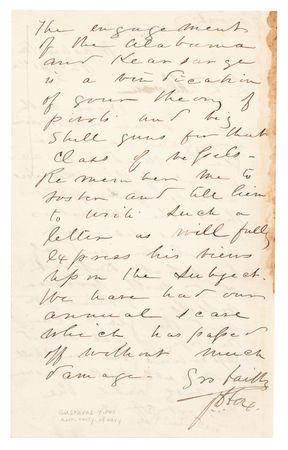 The engagement
of the Alabama
and Kearsarge
is a vindication
of your theory of
pivot and big
shell guns for that
class of vessels -
Remember me to
and tell him
to write such a
letter as will fully
express his views
upon the subject.
We have had our
annual scare
which has passed
off without much
damage -
Yrs faithly
G V Fox.
GUSTAVUS V. FOX
ASST. SECY. OF NAVY